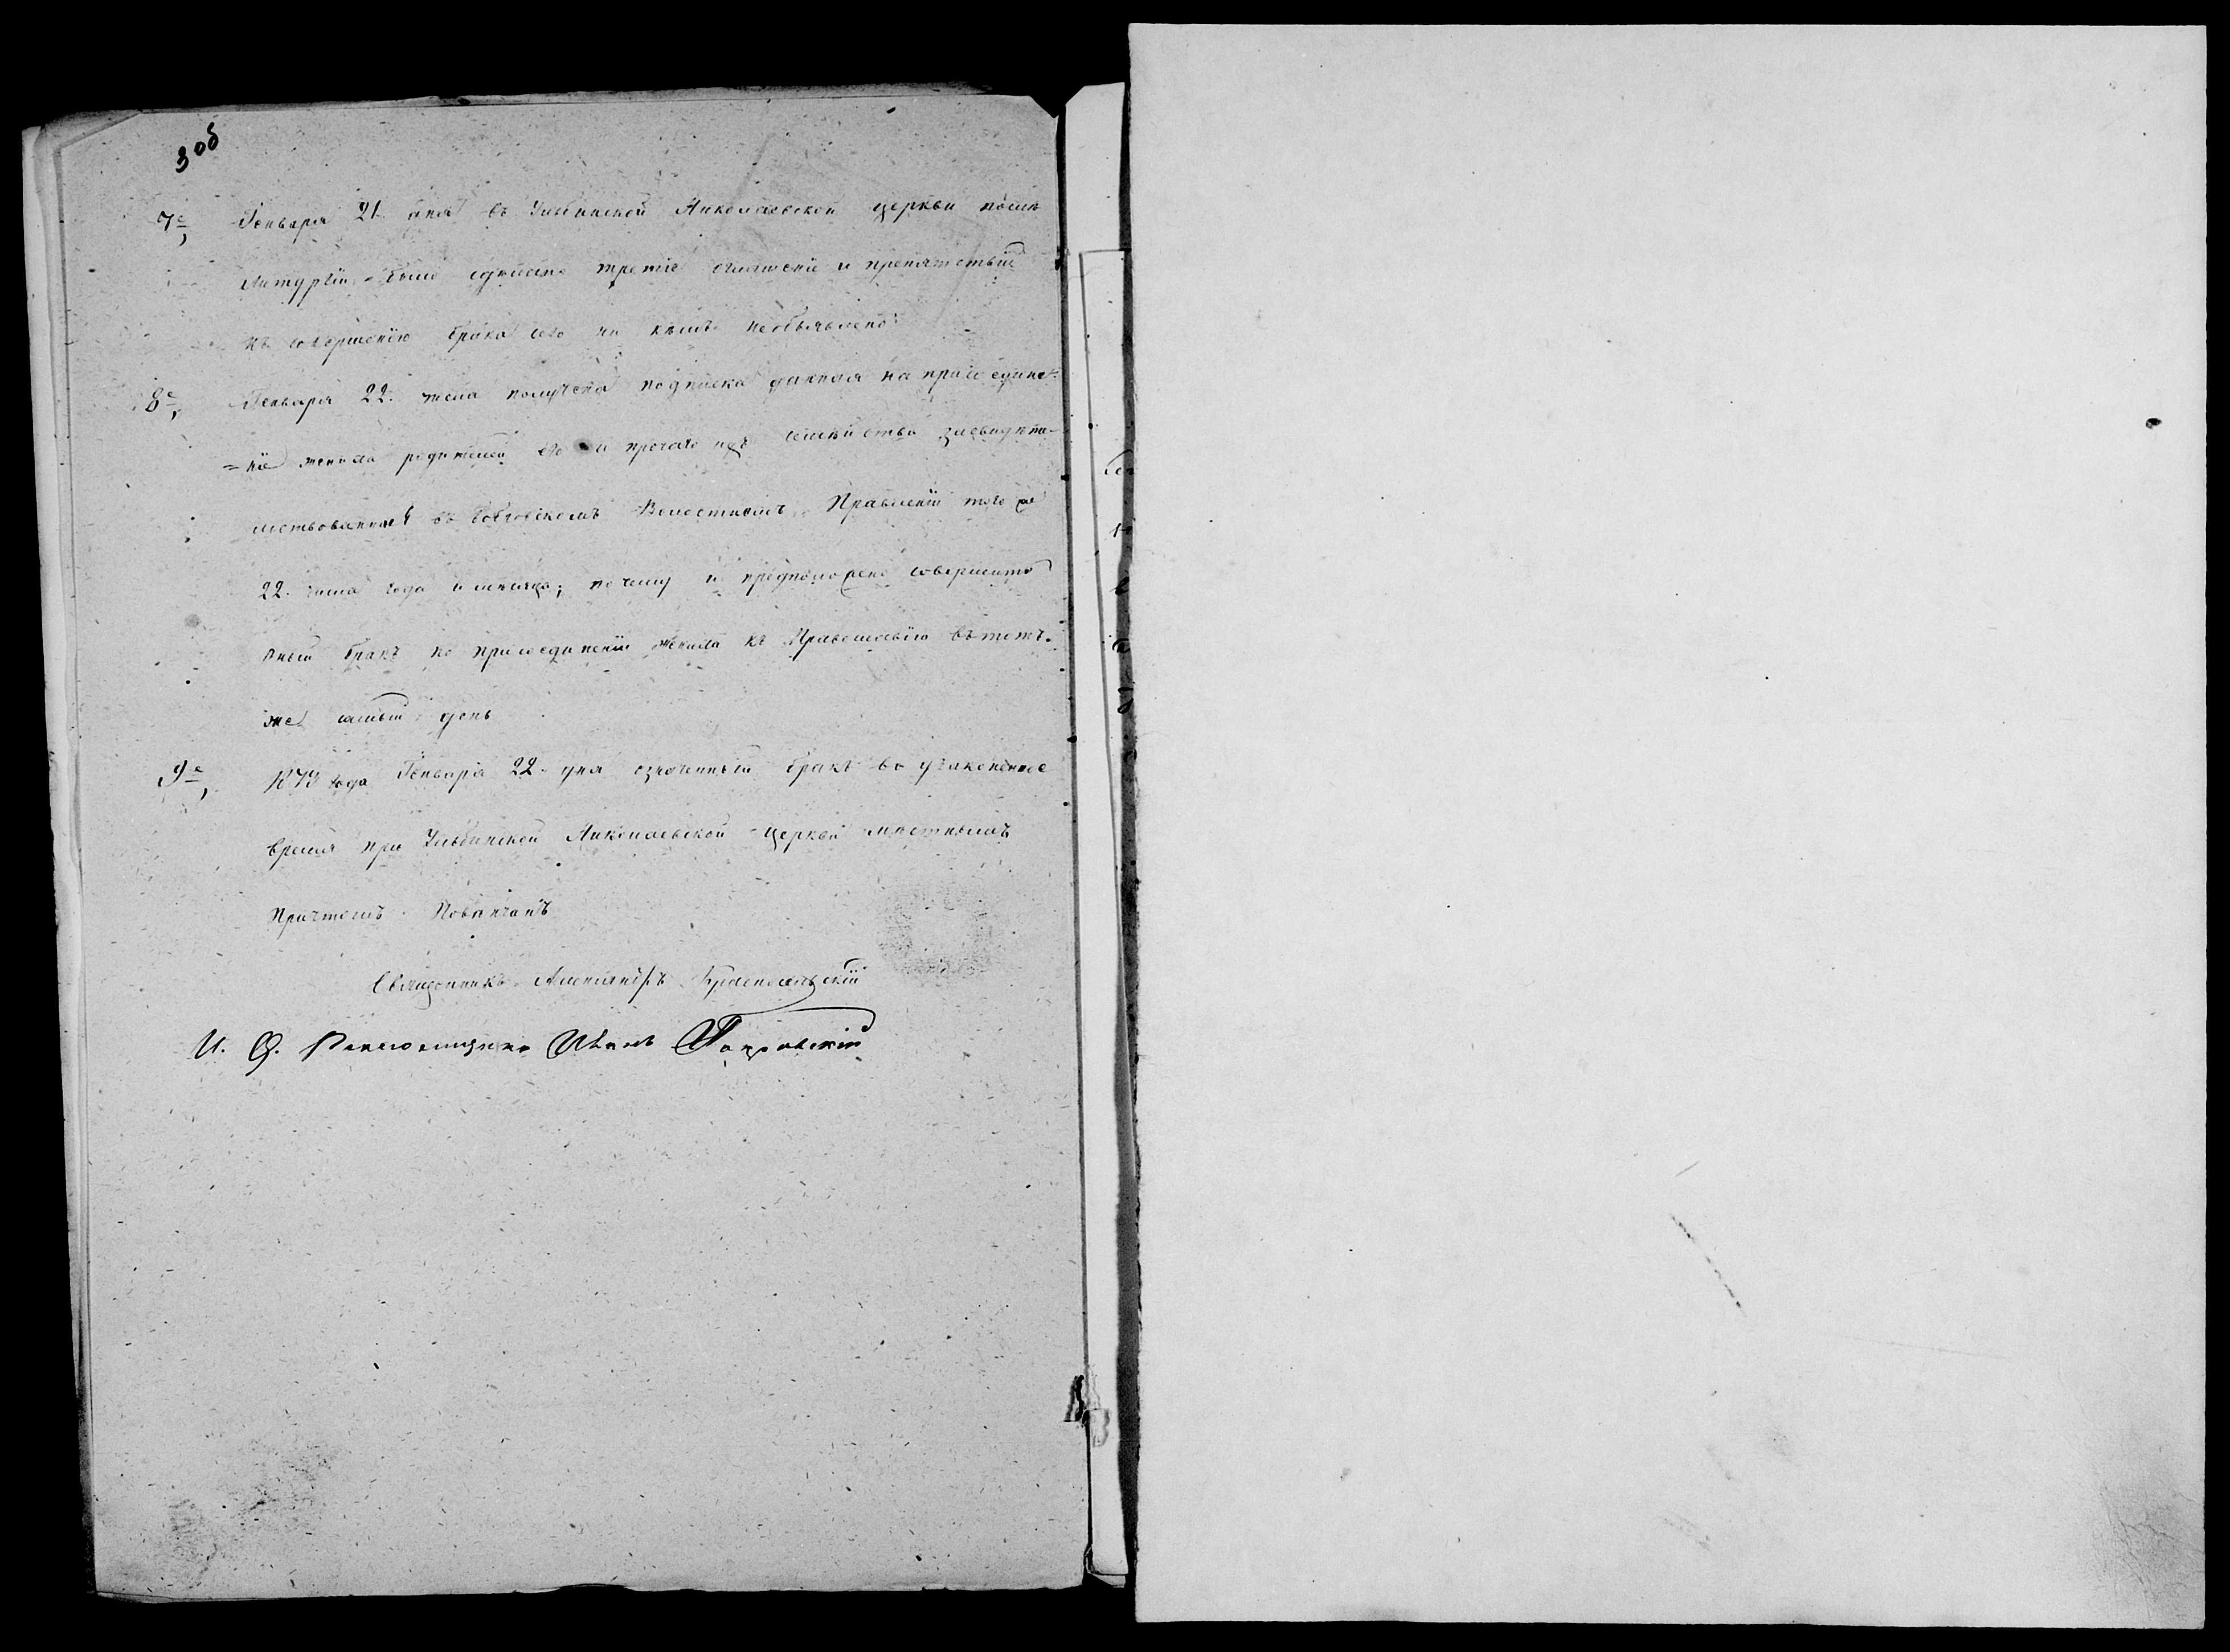 3об
7е, Генваря 21 дня въ Ульбинской Николаевской церкви послѣ
Литургіи было сдѣлано третіе оглашеніе и препятствій
къ совершенію брака сего ни кѣмъ необъявлено
8е, Генваря 22. числа получена подписка данная на присоедине-
=ніе жениха родителей его и прочаго ихъ семейства засвидѣте-
льствованная въ Волостномъ Правленіи того же
22. числа года и мѣсяца; почему и предположено совершить
бракъ по присоединеніи жениха къ Православію въ тотъ-
же самый день
9е, года Генваря 22. дня означенный бракъ во узаконенное
время при Ульбинской Николаевской церкви мѣстнымъ
Причтомъ Повѣнчанъ
Священникъ Александръ
И. Д. Псаломщика Иванъ Покровскій